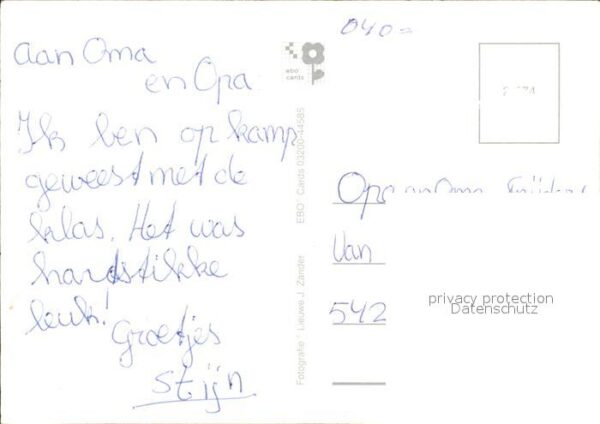 aan Oma
en Opa
Ik ben op kamp
geweest met de
klas. Het was
hartstikke
leuk!
Groetjes
Stijn
ebo
cards
EBO Cards 03200-44585
Fotografie: Lieuwe J. Zander
040=
Opa en Oma
Van
542
privacy protection
Datenschutz